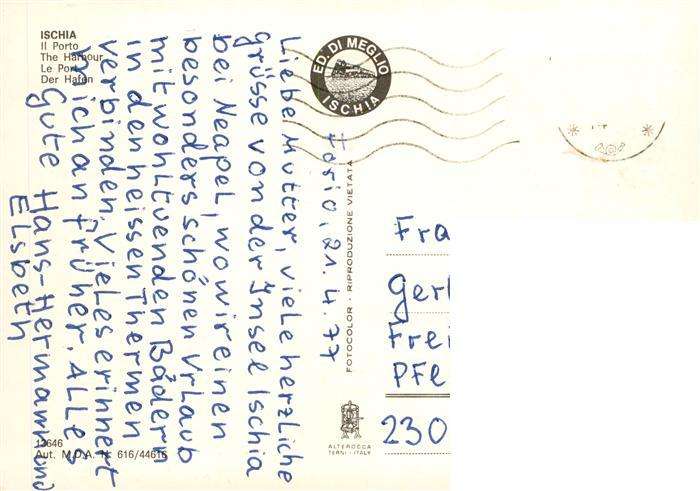 ISCHIA
Il Porto
The Harbour
Le Port
Der Hafen
ED. DI MEGLIO
ISCHIA
Forio, 21. 4. 77
Liebe Mutter, viele herzliche
Grüsse von der Insel Ischia
bei Neapel, wo wir einen
besonders schönen Urlaub
mit wohltuenden Bädern
in den heissen Thermen
verbinden. Vieles erinnert
mich an früher. Alles
Gute Hans-Hermann und
Elsbeth
FOTOCOLOR - RIPRODUZIONE VIETATA
Fra
Gerl
Frei
Pfle
230
ALTEROCCA
TERNI - ITALY
Aut. M.D.A. N. 616/44616